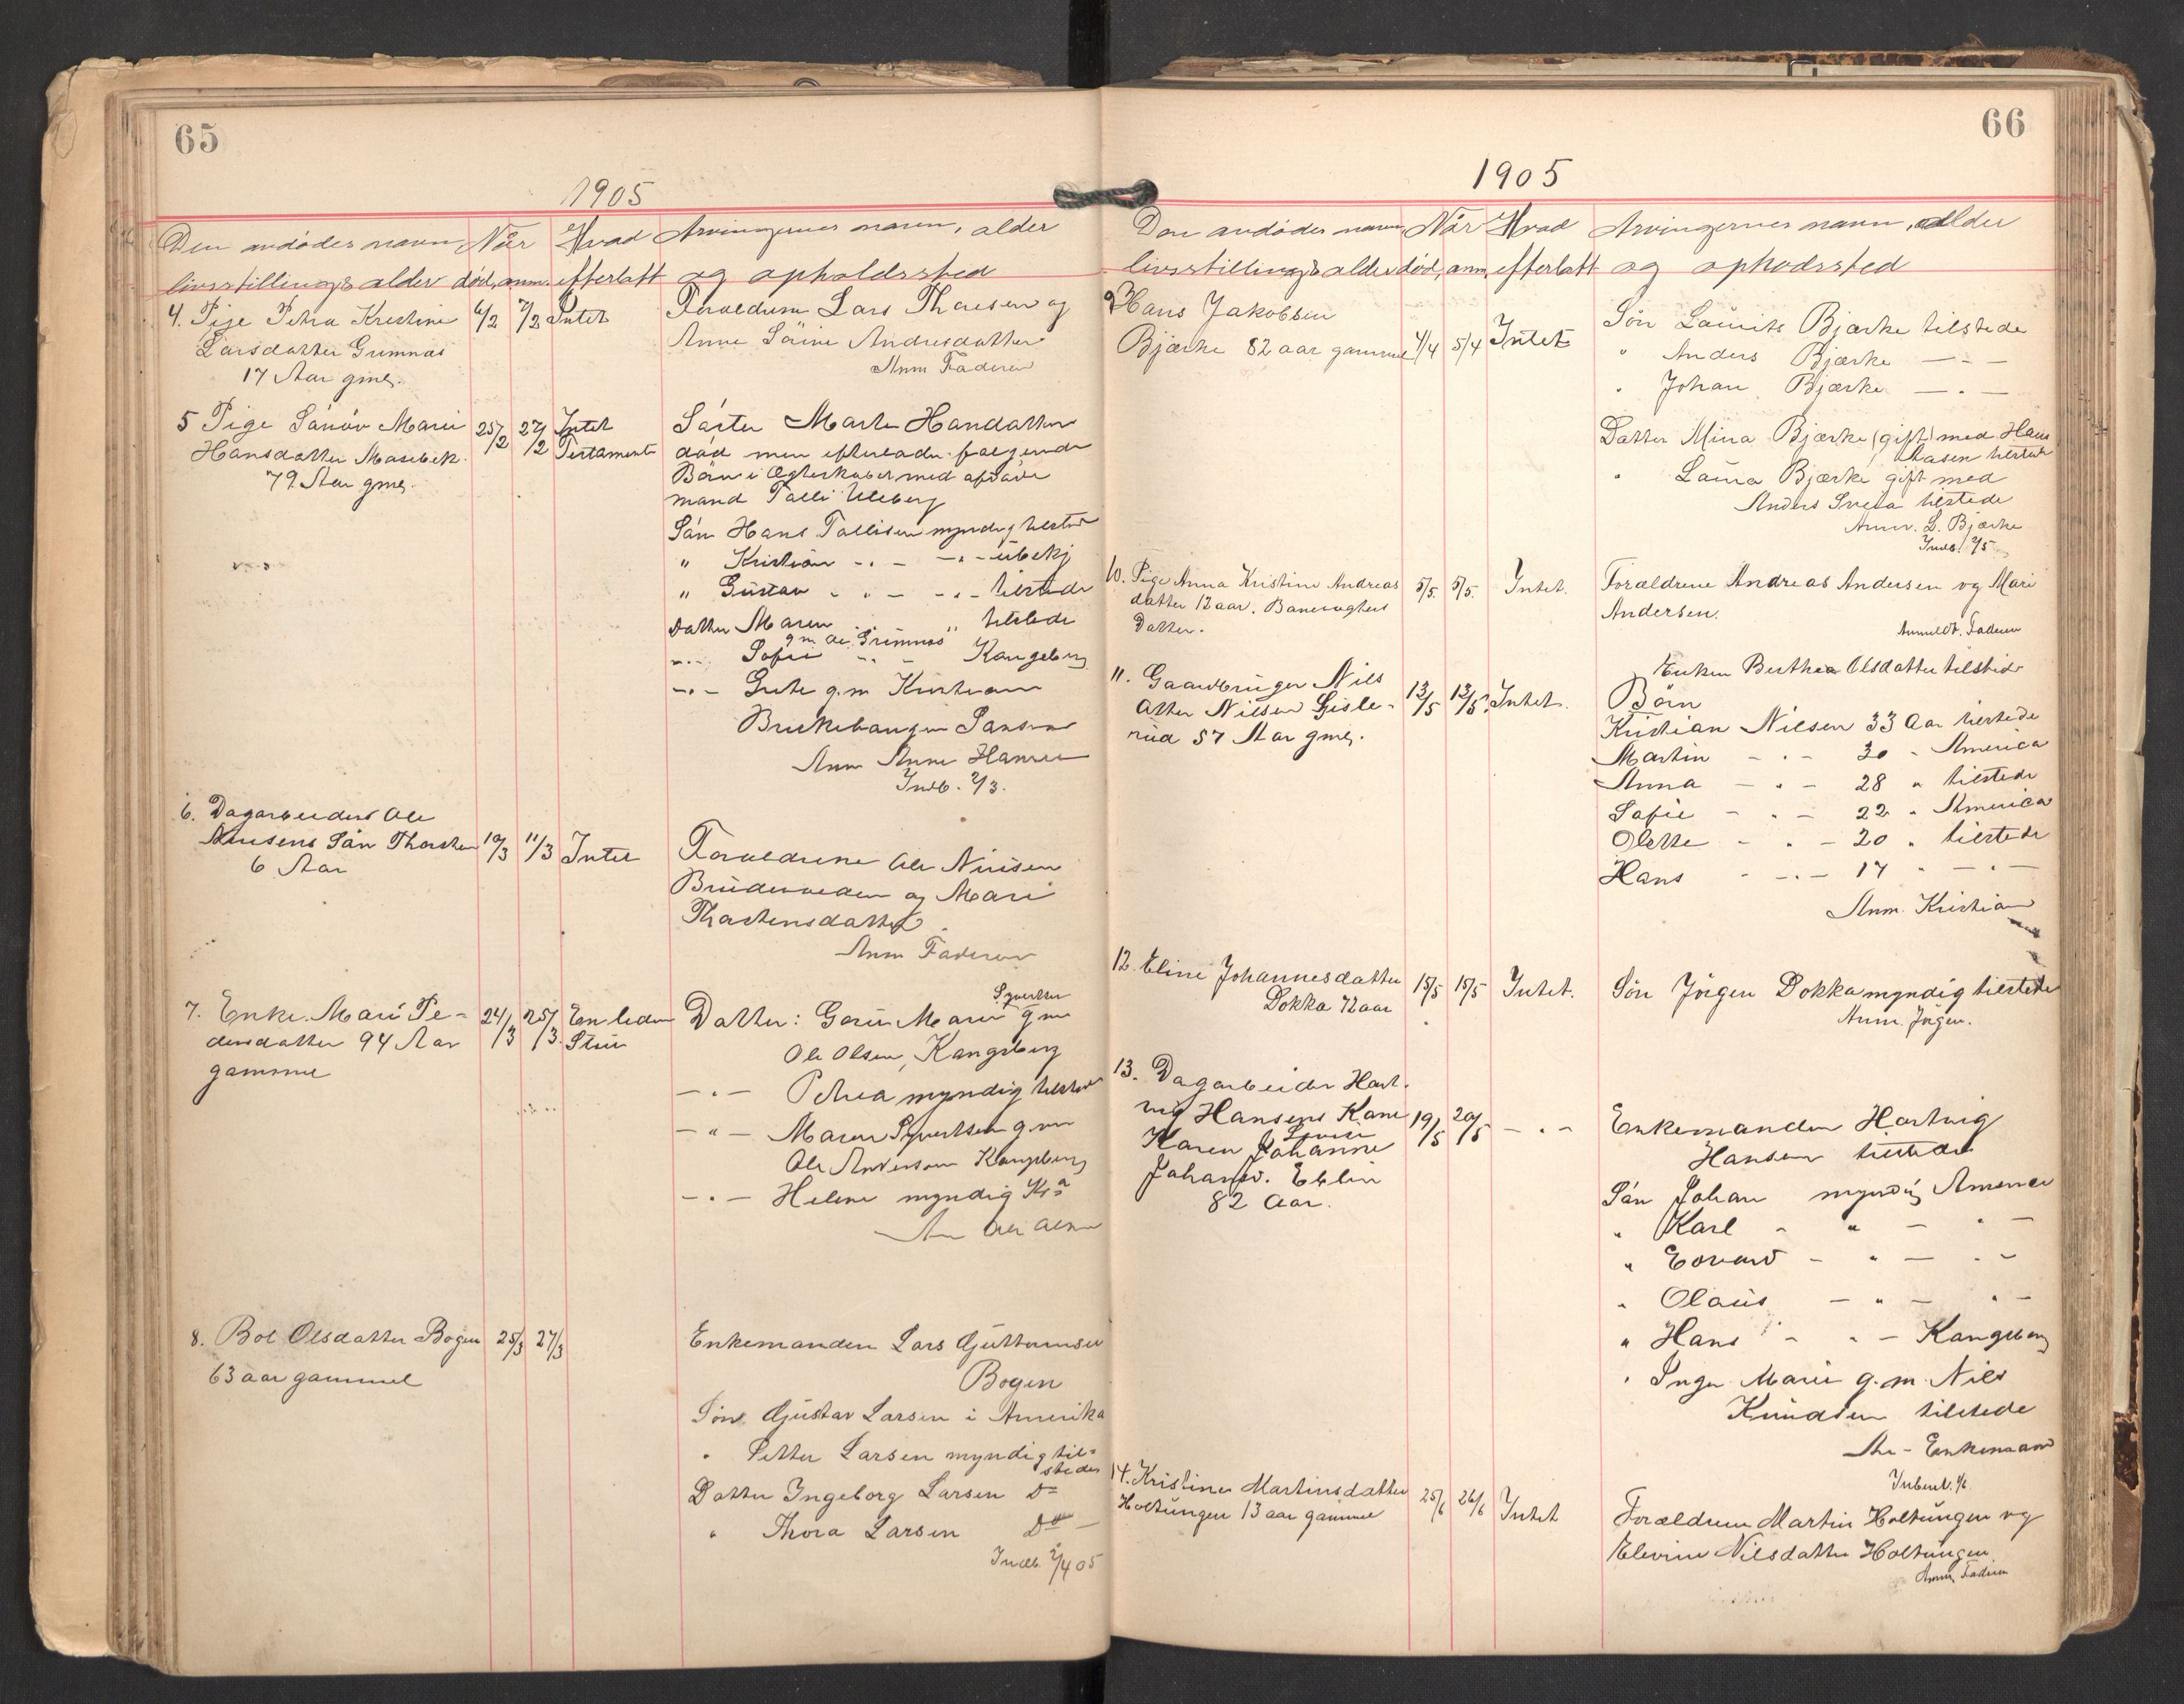 65
1905
Den avdødes navn Når Hvad Arvingernes navn, alder
livsstilling & alder død, anm. efterlatt og opholdssted
4. Pige Petra Kristine 6/2 7/2 Intet Foræeldrene Lars Thoresen og
Larsdatter Grimnæs Anne Sörine Andersdatter
17 Aar gml. Anm Faderen
5 Pige Marie 25/2 27/2 Intet Söster Marte Hansdatter
Hansdatter 79 Aar gml. Testament død men efterlader følgende
Börn i Ægteskabet med afdøde
mand Tolli Uleberg
Sön Hans Tollisen myndig tilstede
" Kristian -.- -.- ubekj
" Gustav -.- -.- tilstede
Datter Maren " tilstede
g m Ole Grimnæs
-.- Sofie -.- Kongsberg
-.- g.m Kristian
Anm Anne Hansen
Indb. 2/3.
6. Dagarbeider Ole
Nirisens Sön Thorsten 10/3 11/3 Intet Foræeldrene Ole Nirisen
6 Aar og Mari
Thorstensdatter
Anm Faderen
7. Enke Mari Pe- 24/3 25/3 En liden Datter: Marie Syvertsen g m
dersdatter 94 Aar Stue Ole Olsen, Kongsberg
gammel -.- Petrea myndig tilstede
-"- Maren Syvertsen g m
Ole Andersen Kongsberg
-.- Helene myndig Kr.a
Ole Olsen
8. Bol Olsdatter Bogen 25/3 27/3 Enkemanden Lars Gjuttormsen
63 aar gammel Bogen
Sön Gjustav Larsen i Amerika
" Petter Larsen myndig til-
stede
Datter Ingeborg Larsen Do
" Thora Larsen Do
Indb. 2/4 05
66
1905
Den avdødes navn Når Hvad Arvingernes navn, alder
livsstilling & alder død, anm, efterlatt og ophodssted
9 Hans Jakobsen Sön Laurits Bjærke tilstede
Bjærke 82 aar gammel 4/4 5/4 Intet " Anders Bjærke -"-
" Johan Bjærke -.-
Datter Mina Bjærke (gift) med Hans
Aasen tilstede
" Laura Bjærke gift med
Anders tilstede
Anm. L. Bjærke
Indb. 2/5
10. Pige Anna Kristine Andreas 5/5. 5/5. Intet. Forældrene Andreas Andersen og Mari
datter 12 aar. Banevogters Andersen.
Datter. Anmeldt. Faderen
Enken Berthea Olsdatter tilstede
11. Gaardbruger Nils 13/5 13/5. Intet. Börn
Atter Nilsen Gisle- Kristian Nilsen 33 Aar tilstede
rud 57 Aar gml. Martin - " - 30 - America
Anna - " - 28 " tilstede
Sofie - " - 22 " America
Olette - " - 20 " tilstede
Hans - -.- 17 " -.-
Anm. Kristian
12. Eline Johannesdatter 15/5 15/5 Intet. Sön Jörgen Dokka myndig tilstede
Dokka 72 aar Anm. Jörgen.
13. Dagarbeider Hart-
vig Hansens Kone 19/5 20/5 -.- Enkemanden Hartvig
Karen Johanne Hansen tilstede
Johansd. Eblin Sön Johan myndig America
82 Aar. " Karl - " - " -
" Edvard - " - " -
" Olaus - " - " -
" Hans - " - Kongsberg
" Inger Marie g.m. Nils
Knudsen tilstede
Enkemand
Indberet. 1/6
14. Kristine Martinsdatter 25/6 26/6 Intet Forældrene Martin Holtungen og
Holtungen 13 aar gammel Elevine Nilsdatter Holtungen
Anm. Faderen